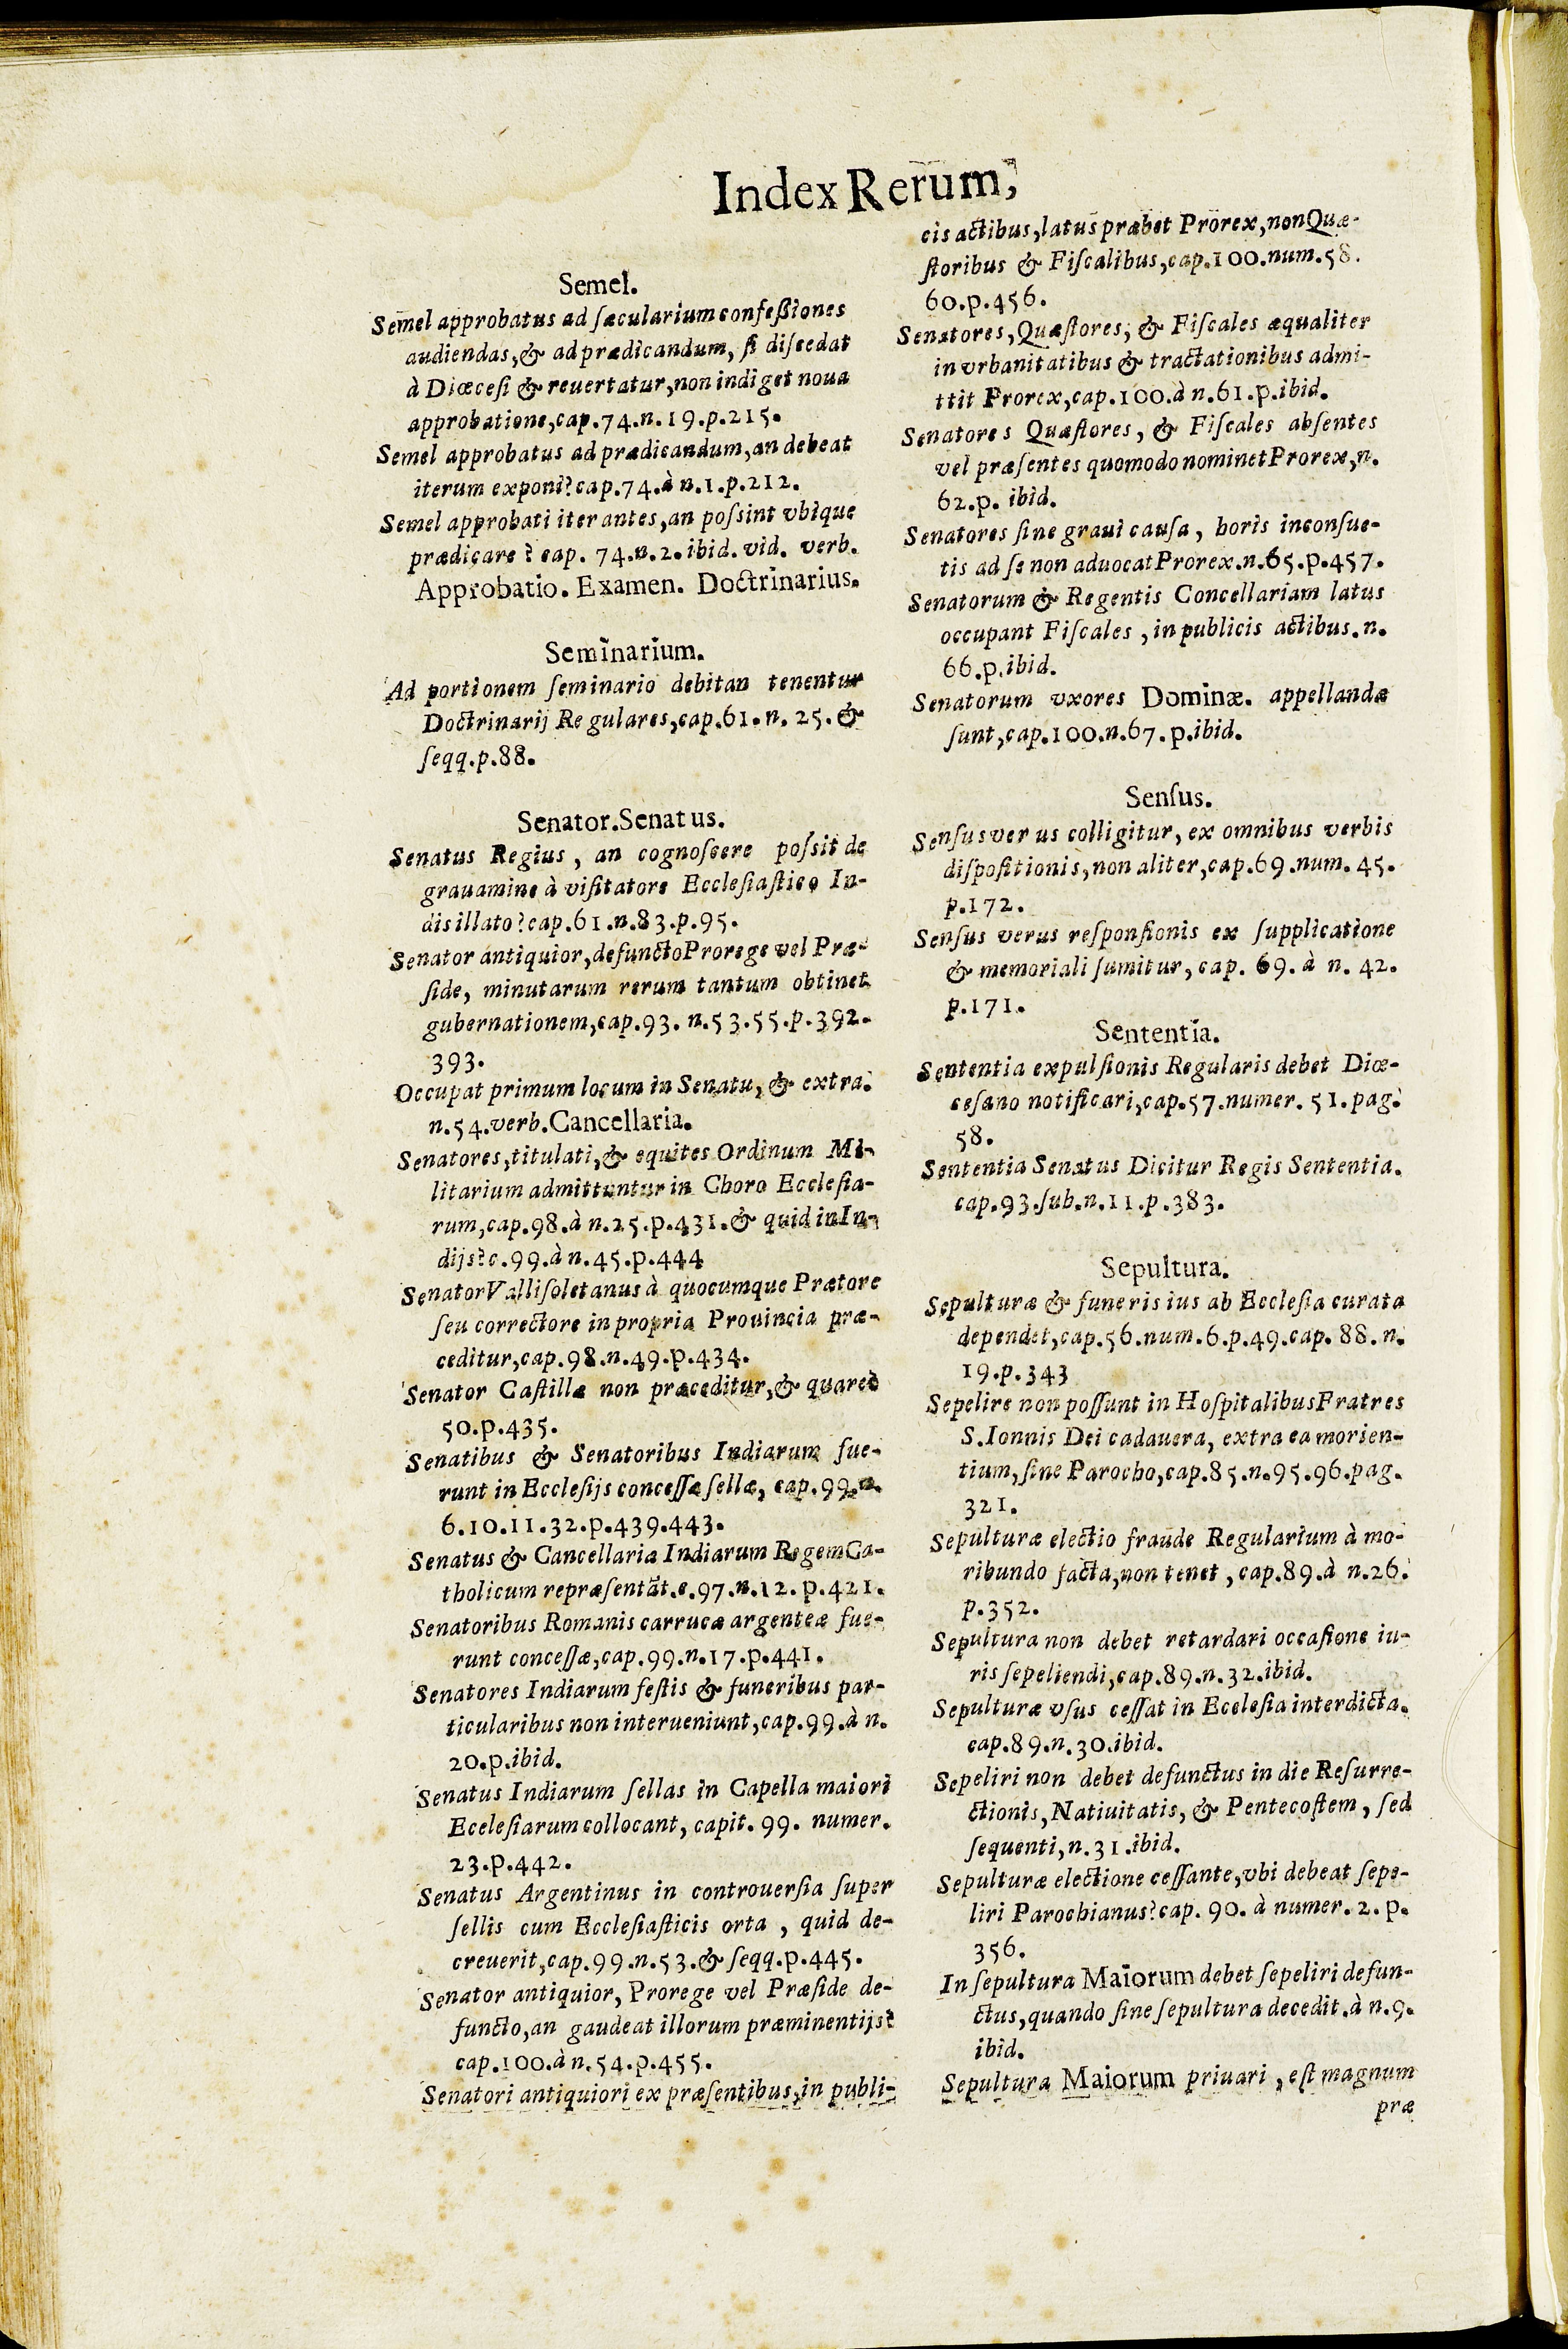 Index Rerum,
Semel.
Semel approbatus ad ſæcularium confeßiones
audiendas, & ad prædicandum, ſi diſcedat
à Diœceſi & reuertatur, non indiget noua
approbatione, cap.74.n.19.p.215.
Semel approbatus ad prædicandum, an debeat
iterum exponi? cap.74.à n.1.p.212.
Semel approbati iterantes, an poſsint vbique
prædicare? cap. 74.n.2.ibid. vid. verb.
Approbatio. Examen. Doctrinarius.
Seminarium.
Ad portionem ſeminario debitan tenentur
Doctrinarij Regulares, cap.61.n. 25. &
ſeqq.p.88.
Senator. Senatus.
Senatus Regius, an cognoſcere poſsit de
grauamine à viſitatore Eccleſiaſtico In-
dis illato? cap.61.n.83.p.95.
Senator antiquior, defuncto Prorege vel Præ-
ſide, minutarum rerum tantum obtinet
gubernationem, cap.93. n.53.55.p.392.
393.
Occupat primum locum in Senatu, & extra.
n.54.verb. Cancellaria.
Senatores, titulati, & equites Ordinum Mi-
litarium admittuntur in Choro Eccleſia-
rum, cap.98.à n.25.p.431. & quid in In-
dijs? c.99.à n.45.p.444
Senator Valliſoletanus à quocumque Prætore
ſeu correctore in propria Prouincia præ-
ceditur, cap.98.n.49.p.434.
Senator Caſtillæ non præceditur, & quare?
50.p.435.
Senatibus & Senatoribus Indiarum fue-
runt in Eccleſijs conceſſæ ſellæ, cap.99.n.
6.10.11.32.p.439.443.
Senatus & Cancellaria Indiarum Regem Ca-
tholicum repræſentāt.c.97.n.12. p.421.
Senatoribus Romanis carrucæ argenteæ fue-
runt conceſſæ, cap.99.n.17.p.441.
Senatores Indiarum feſtis & funeribus par-
ticularibus non interueniunt, cap.99.à n.
20.p.ibid.
Senatus Indiarum ſellas in Capella maiori
Eccleſiarum collocant, capit. 99. numer.
23.p.442.
Senatus Argentinus in controuerſia ſuper
ſellis cum Eccleſiaſticis orta, quid de-
creuerit, cap.99.n.53.& ſeqq.p.445.
Senator antiquior, Prorege vel Præſide de-
functo, an gaudeat illorum præminentijs?
cap.100.à n.54.p.455.
Senatori antiquiori ex præſentibus, in publi-
cis actibus, latus præbet Prorex, non Quæ-
ſtoribus & Fiſcalibus, cap.100.num.58.
60.p.456.
Senatores, Quæſtores, & Fiſcales æqualiter
in vrbanitatibus & tractationibus admi-
ttit Prorex, cap.100.à n.61.p.ibid.
Senatores Quæſtores, & Fiſcales abſentes
vel præſentes quomodo nominet Prorex, n.
62.p. ibid.
Senatores ſine graui cauſa, horis inconſue-
tis ad ſe non aduocat Prorex.n.65.p.457.
Senatorum & Regentis Concellariam latus
occupant Fiſcales, in publicis actibus. n.
66.p.ibid.
Senatorum vxores Dominæ. appellandæ
ſunt, cap.100.n.67.p.ibid.
Senſus.
Senſus verus colligitur, ex omnibus verbis
diſpoſitionis, non aliter, cap.69.num. 45.
p.172.
Senſus verus reſponſionis ex ſupplicatione
& memoriali ſumitur, cap. 69. à n. 42.
p.171.
Sententia.
Sententia expulſionis Regularis debet Diœ-
ceſano notificari, cap.57.numer. 51.pag.
58.
Sententia Senatus Dicitur Regis Sententia.
cap.93.ſub.n.11.p.383.
Sepultura.
Sepulturæ & funeris ius ab Eccleſia curata
dependet, cap.56.num.6.p.49.cap. 88. n.
19.p.343
Sepelire non poſſunt in Hoſpitalibus Fratres
S.Ionnis Dei cadauera, extra ea morien-
tium, ſine Parocho, cap.85.n.95.96.pag.
321.
Sepulturæ electio fraude Regularium à mo-
ribundo facta, non tenet, cap.89.à n.26.
p.352.
Sepultura non debet retardari occaſione iu-
ris ſepeliendi, cap.89.n.32.ibid.
Sepulturæ vſus ceſſat in Eccleſia interdicta.
cap.89.n.30.ibid.
Sepeliri non debet defunctus in die Reſurre-
ctionis, Natiuitatis, & Pentecoſtem, ſed
ſequenti, n.31.ibid.
Sepulturæ electione ceſſante, vbi debeat ſepe-
liri Parochianus? cap. 90. à numer. 2. p.
356.
In ſepultura Maiorum debet ſepeliri defun-
ctus, quando ſine ſepultura decedit. à n.9.
ibid.
Sepultura Maiorum priuari, eſt magnum
præ